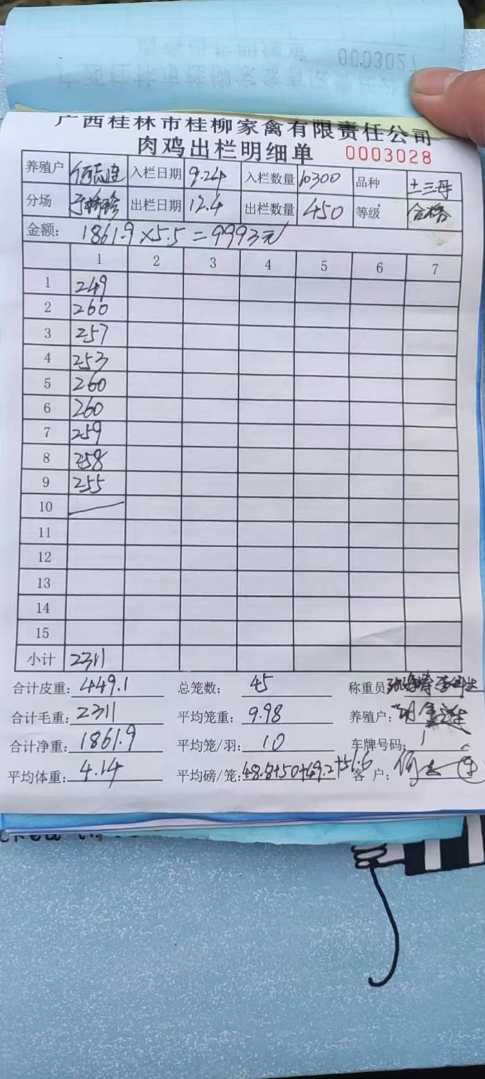 0003027
广西桂林市桂柳家禽有限责任公司
肉鸡出栏明细单 0003028
养殖户 入栏日期 9.24 入栏数量 10300 品种 土三母
分场 出栏日期 12.4 出栏数量 450 等级 合格
金额: 1861.9×5.5=9993元
1 2 3 4 5 6 7
1 249
2 260
3 257
4 253
5 260
6 260
7 259
8 258
9 255
10
11
12
13
14
15
小计 2311
合计皮重: 449.1 总笼数: 45 称重员
合计毛重: 2311 平均笼重: 9.98 养殖户:
合计净重: 1861.9 平均笼/羽: 10 车牌号码:
平均体重: 4.14 平均磅/笼: 48.8+50+49.2+51.6 客户: